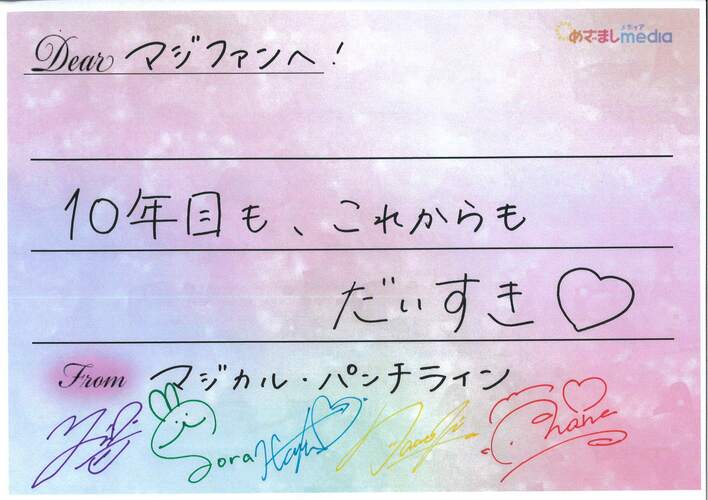 めざましmedia
メディア
Dear マジファンへ!
10年目も、これからも
だいすき♡
From マジカル・パンチライン
Sora